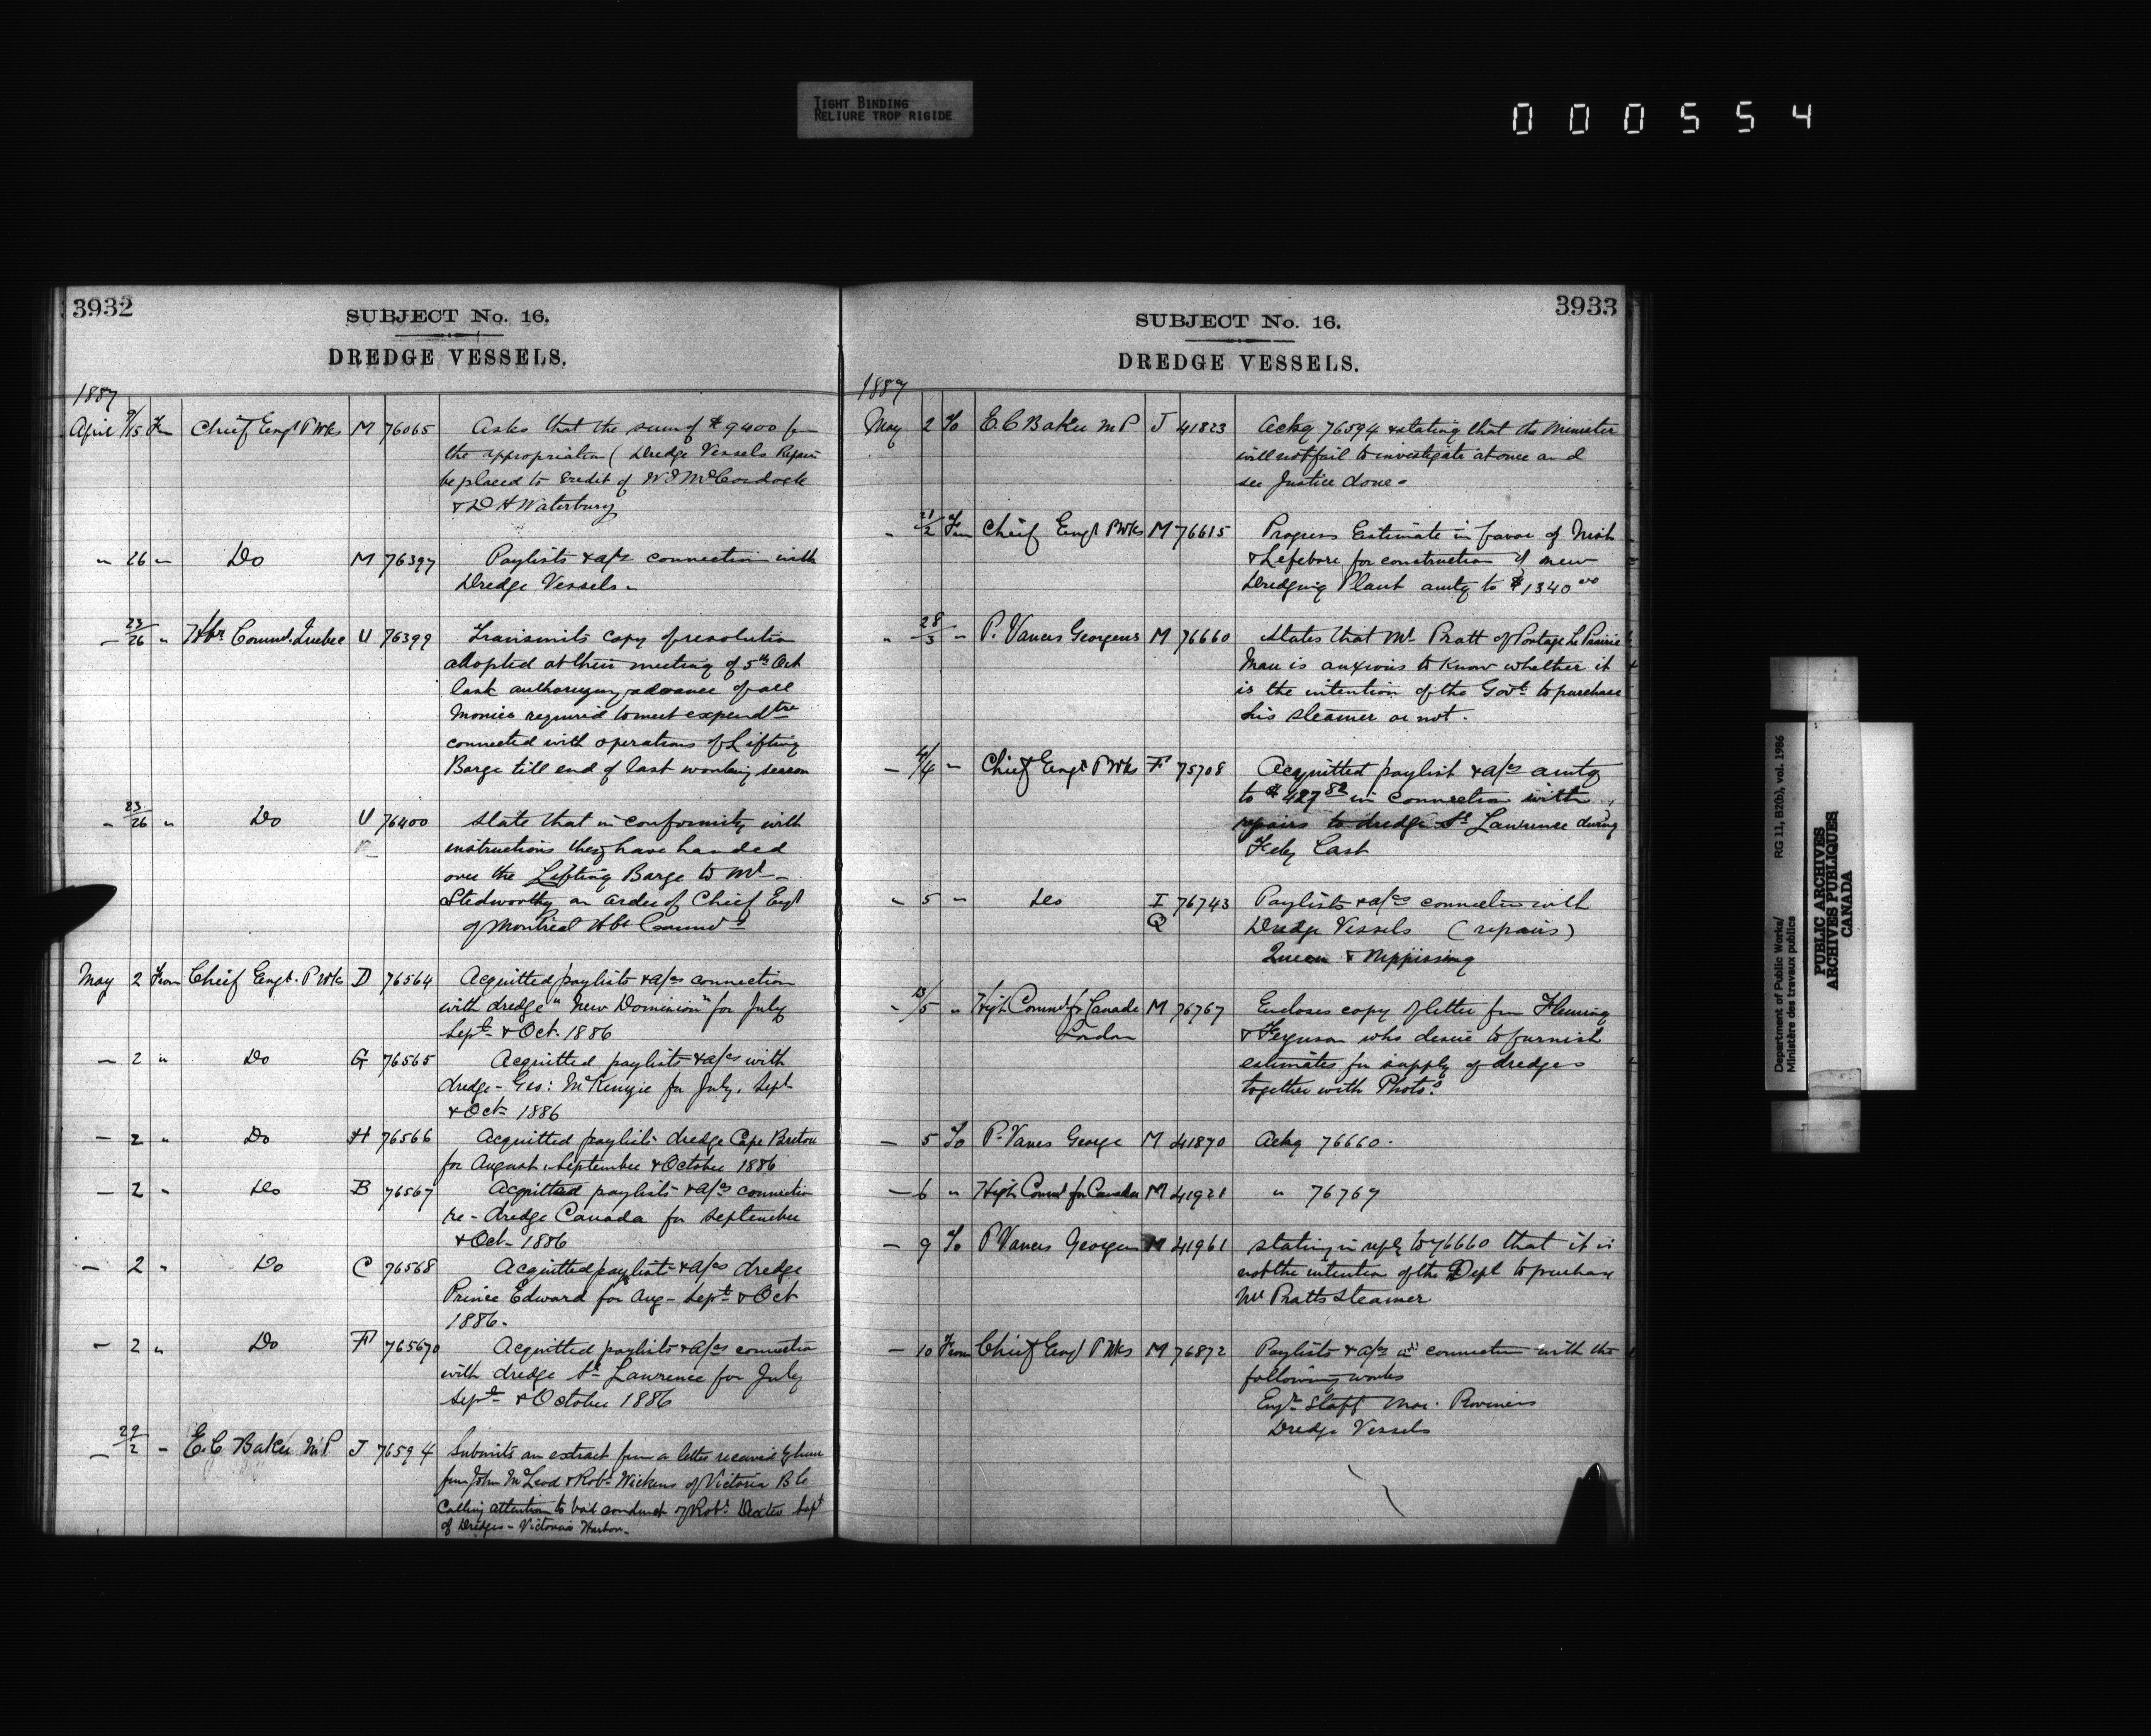 TIGHT BINDING
RELIURE TROP RIGIDE
000554
3932
SUBJECT No. 16.
DREDGE VESSELS.
1887
April 9/15 Fm Chief Engr P Wks M 76065 Asks that the sum of $9400 fm
the appropriation (Dredge Vessels Repairs
be placed to credit of W J McCordock
& D H Waterbury
" 26 " Do M 76397 Paylists & a/cs connection with
Dredge Vessels -
- 23/26 " Hbr Commrs. Quebec U 76399 Transmits copy of resolution
adopted at their meeting of 5th Oct
last authorizing advance of all
Monies required to meet expendtre
connected with operations of Lifting
Barge till end of last working season
- 23/26 " Do U 76400 State that in conformity with
instructions they have handed
over the Lifting Barge to Mr -
Stedworthy on order of Chief Engr
of Montreal Hbr Commrs
May 2 From Chief Engr. P Wks D 76564 Acquitted paylists & a/cs connection
with dredge "New Dominion" for July
Sept & Oct. 1886
- 2 " Do G 76565 Acquitted paylists & a/cs with
dredge - Geo: McKenzie for July, Sept
& Oct 1886
- 2 " Do H 76566 Acquitted paylists dredge Cape Breton
for August, September & October 1886
- 2 " Do B 76567 Acquitted paylists & a/cs connection
re - dredge Canada for September
& Oct - 1886
- 2 " Do C 76568 Acquitted paylists & a/cs dredge
Prince Edward for Aug - Sept & Oct
1886.
- 2 " Do F 76570 Acquitted paylists & a/cs connection
with dredge St Lawrence for July
Sept & October 1886
- 29/2 - E. C Baker M.P J 76594 Submits an extract from a letter received by him
from John McLeod & Robt Wickens of Victoria B C
Calling attention to bad conduct of Robt Dexter Supt
of Dredges - Victoria Harbor -
3933
SUBJECT No. 16.
DREDGE VESSELS.
1887
May 2 To E. C Baker M P J 41823 Ackg 76594 & stating that the Minister
will not fail to investigate at once and
see Justice done -
- 21/2 Fm Chief Engr P Wks M 76615 Progress Estimate in favor of
& Lefebvre for construction of new
Dredging Plant amtg to $1340 00
" 28/3 " P. Vances Georgeus M 76660 States that Mr Pratt of Portage La Prairie
Man is anxious to know whether it
is the intention of the Govt to purchase
his steamer or not.
- 4/4 " Chief Engr P Wks F 75708 Acquitted paylist & a/cs amtg
to $427 82 in connection with
repairs to dredge St Lawrence during
Feby last
- 5 " Do I Q 76743 Paylists & a/cs connection with
Dredge Vessels (repairs)
Queen & Nippissing
- /5 " High Commr for Canada M 76767 Encloses copy of letter from Fleming
London & Ferguson who desire to furnish
estimates for supply of dredges
together with Photos.
- 5 To P. Vances George M 41870 Ackg 76660.
- 6 " High Commr for Canada M 41921 " 76767
- 9 To P Vances Georgeus M 41961 stating in reply to 76660 that it is
not the intention of the Dept to purchase
Mr Pratts steamer
- 10 From Chief Engr P Wks M 76872 Paylists & a/cs in connection with the
following works
Engr Staff Mar. Provinces
Dredge Vessels
Department of Public Works/
Ministère des travaux publics
RG 11, B2(b), vol. 1986
PUBLIC ARCHIVES
ARCHIVES PUBLIQUES
CANADA